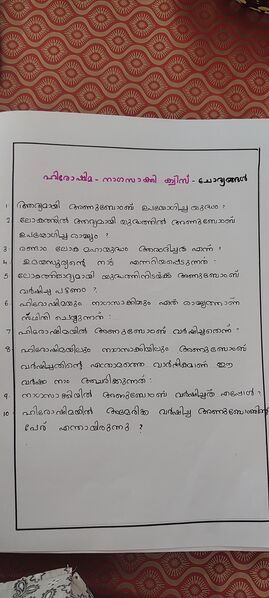 ഹിരോഷിമ - നാഗസാക്കി ക്വിസ് - ചോദ്യങ്ങൾ
1 ആദ്യമായി അണുബോംബ് ഉപയോഗിച്ച യുദ്ധം ?
2 ലോകത്തിൽ ആദ്യമായി യുദ്ധത്തിൽ അണുബോംബ്
ഉപയോഗിച്ച രാജ്യം ?
3 രണ്ടാം ലോക മഹായുദ്ധം ആരംഭിച്ചത് എന്ന് ?
4 ഉദയസൂര്യന്റെ നാട് എന്നറിയപ്പെടുന്നത് :
5 ലോകത്താദ്യമായി യുദ്ധത്തിനിടയ്ക്ക് അണുബോംബ്
വർഷിച്ച പട്ടണം ?
6 ഹിരോഷിമയും നാഗസാക്കിയും ഏത് രാജ്യത്താണ്
സ്ഥിതി ചെയ്യുന്നത് :
7 ഹിരോഷിമയിൽ അണുബോംബ് വർഷിച്ചതെന്ന് ?
8 ഹിരോഷിമയിലും നാഗസാക്കിയിലും അണുബോംബ്
വർഷിച്ചതിന്റെ എത്രാമത്തെ വാർഷികമാണ് ഈ
വർഷം നാം ആചരിക്കുന്നത് :
9 നാഗസാക്കിയിൽ അണുബോംബ് വർഷിച്ചത് എപ്പോൾ ?
10 ഹിരോഷിമയിൽ അമേരിക്ക വർഷിച്ച അണുബോംബിന്റെ
പേര് എന്തായിരുന്നു ?